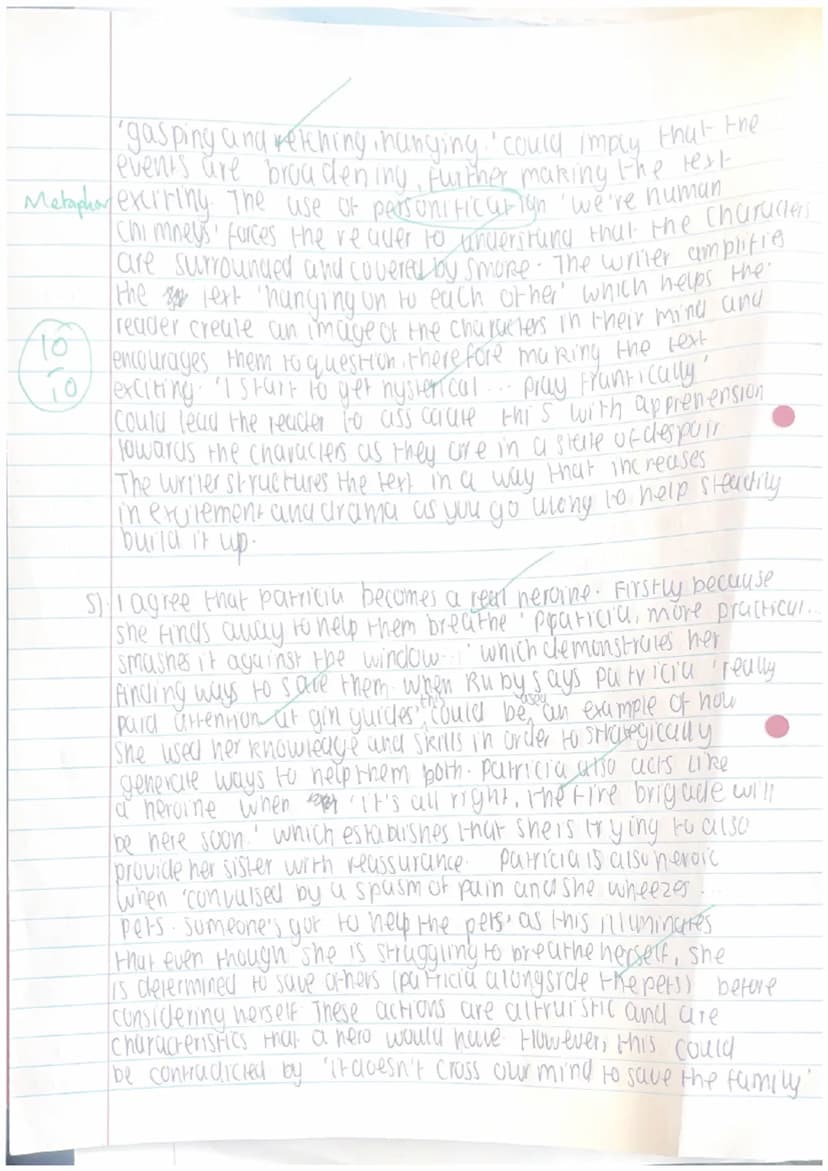 'gasping and retching, hanging.' could imply that the
events are broadening, further making the text
Metaphor exciting. The use of personification 'we're human
chimneys' forces the reader to understand that the characters
are surrounded and covered by smoke. The writer amplifies
the text 'hanging on to each other' which helps the
reader create an image of the characters in their mind and
10/10
encourages them to question, therefore making the text
exciting. 'I start to get hysterical ... pray frantically'
could lead the reader to associate this with apprehension
towards the characters as they are in a state of despair
The writer structures the text in a way that increases
in excitement and drama as you go along to help steadily
build it up.
5). I agree that patricia becomes a real heroine. Firstly because
she finds away to help them breathe 'Patricia, more practical...
smashes it against the window...' which demonstrates her
finding ways to save them. When Ruby says patricia 'really
paid attention at girl guides', this could be used an example of how
she used her knowledge and skills in order to strategically
generate ways to help them both. Patricia also acts like
a heroine when 'it's all right, the fire brigade will
be here soon.' which establishes that she is trying to also
provide her sister with reassurance. Patricia is also heroic
when 'convulsed by a spasm of pain and she wheezes...
pets. someone's got to help the pets' as this illuminates
that even though she is struggling to breathe herself, she
is determined to save others (patricia alongside the pets) before
considering herself. These actions are altruistic and are
characteristics that a hero would have. However, this could
be contradicted by 'it doesn't cross our mind to save the family'